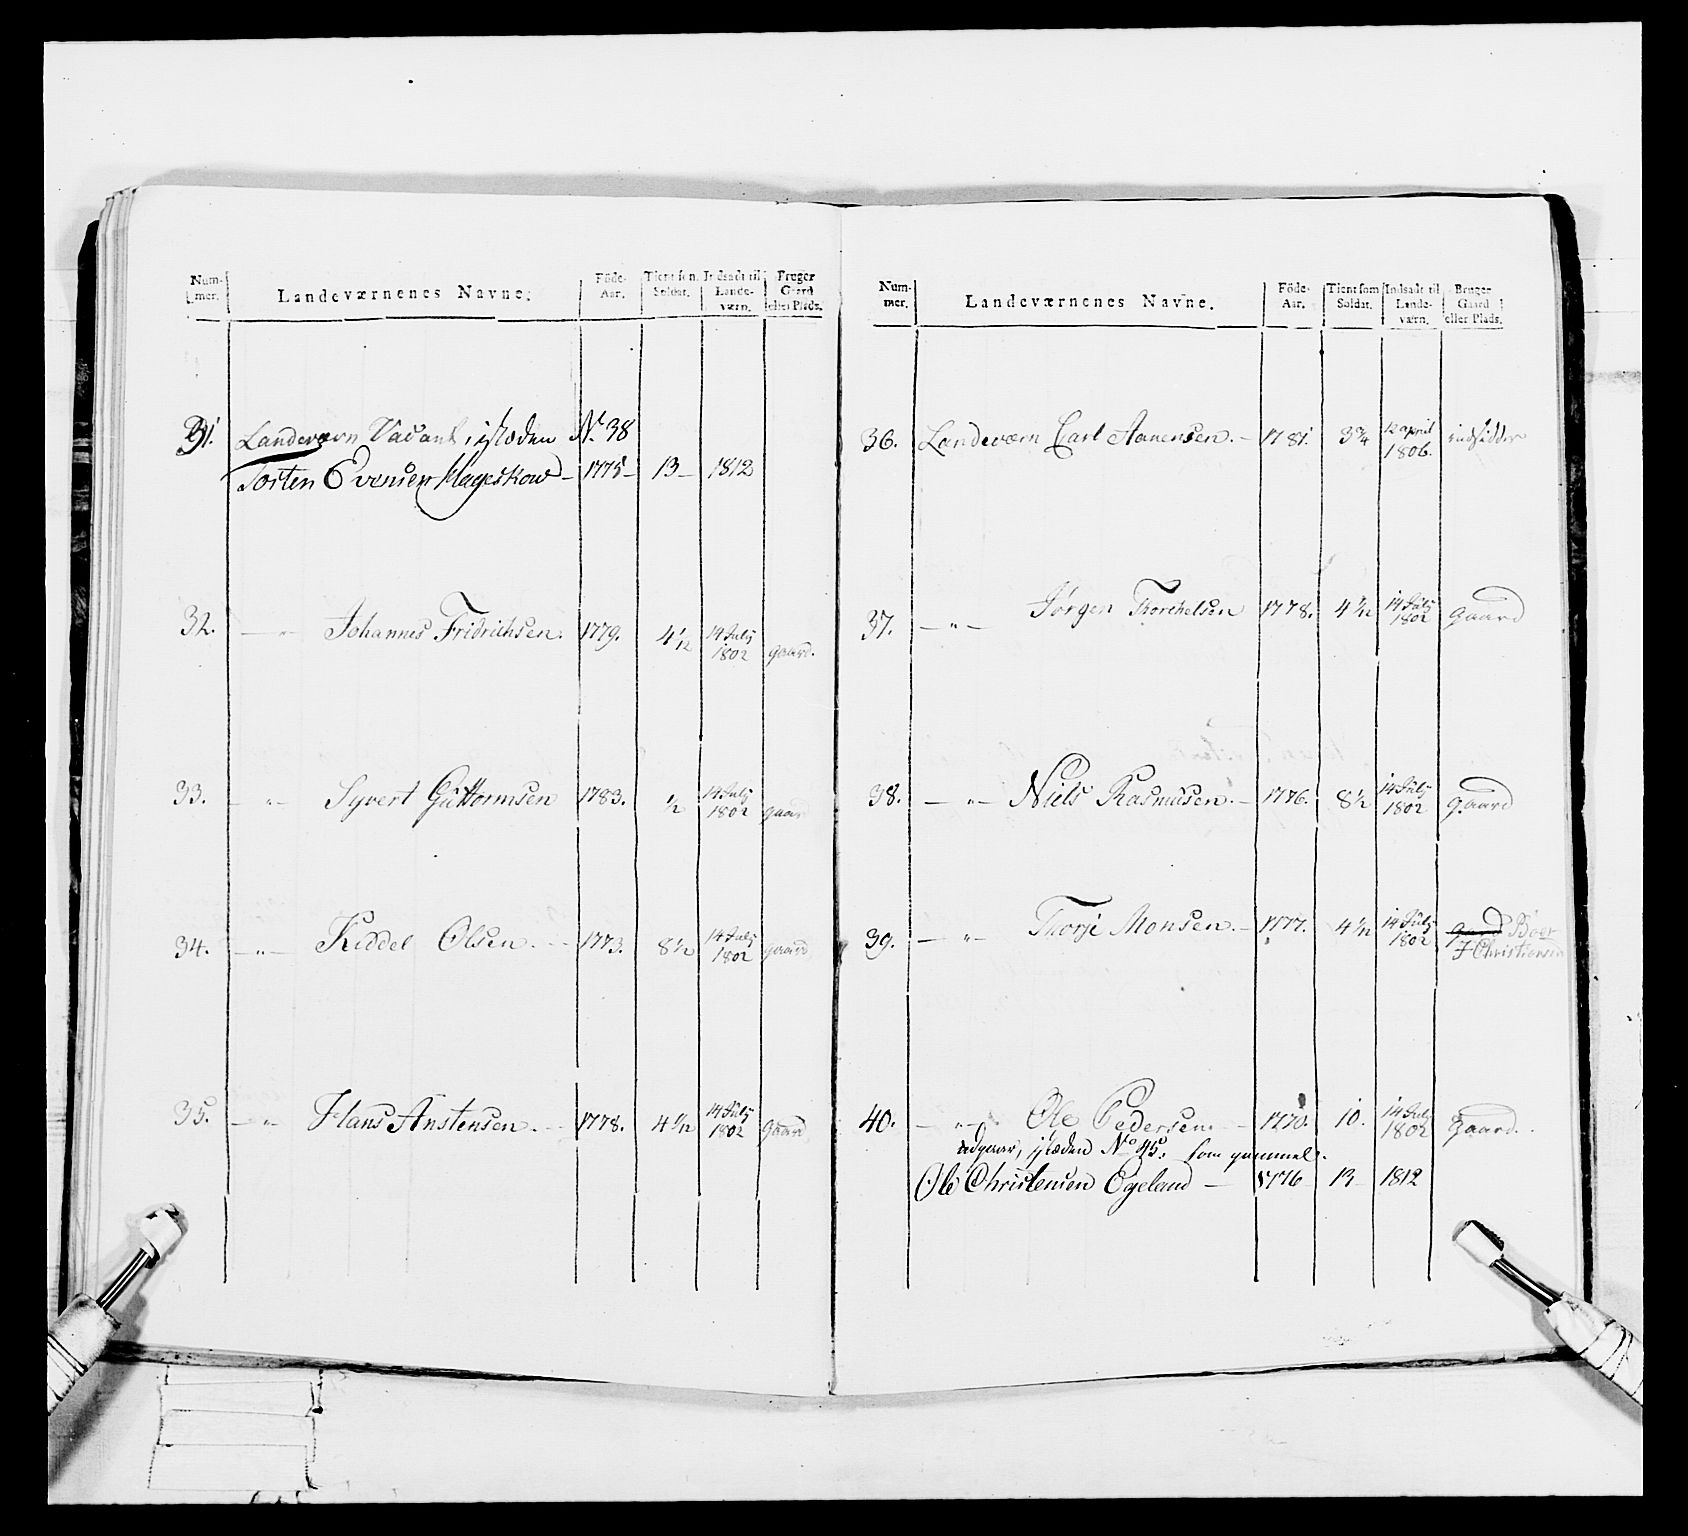 Num-
mer.
Landeværnenes Navne.
Föde-
Aar.
Tient som
Soldat.
Indsadt til
Lande-
værn.
Bruger
Gaard
eller Plads.
31. Landeværn Vacant, istæden No. 38
Torsten Evensen Hageskow – 1775 – 13 – 1812
32. — " — Johannes Fridrichsen. 1779. 4 1/12 14 July 1802 gaard.
33. — " — Syvert Guttormsen 1783. 1/2 14 July 1802 gaard
34. — " — Kiddel Olsen. — 1773. 8 1/2 14 July 1802 gaard
35. — " — Hans Anstensen. — 1778. 4 1/12 14 July 1802 gaard
Num-
mer.
Landeværnenes Navne.
Föde-
Aar.
Tient som
Soldat.
Indsadt til
Lande-
værn.
Bruger
Gaard
eller Plads.
36. Landeværn Carl Aanensen. – 1781. 3 3/4 12 april 1806. indsidder
37. — " — Jørgen Thorchelsen 1778. 4 1/12 14 July 1802 gaard
38. — " — Niels Rasmusen. – 1776. 8 1/2 14 July 1802 gaard
39. — " — Thorje Monsen. – 1777. 4 1/12 14 July 1802 gaard Boer
I Christiansen
40. — " — Ole Pedersen. – 1770. 10. 14 July 1802 gaard.
udgaar, istæden No 45. som gammel.
Ole Christensen Egeland — 1776 13 – 1812